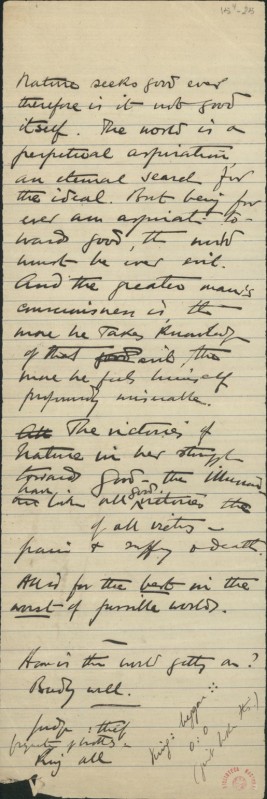 Nature seeks good ever
therefore is it not good
itself. The world is a
perpetual aspiration,
an eternal search for
the ideal. But being for
ever an aspirat. to-
wards good, the world
must be ever evil.
And the greater man's
consciousness is, the
more he takes knowledge
of that good evil, the
more he feels himself
profoundly miserable.
All The victories of
Nature in her struggle
towards good – the
have like all victories the
of all victs –
pain & suffg & death.
All is for the best in the
worst of possible worlds.
How is the world getting on?
Badly well.
Judge : thief
King all
King : beggar ::
0 : 0